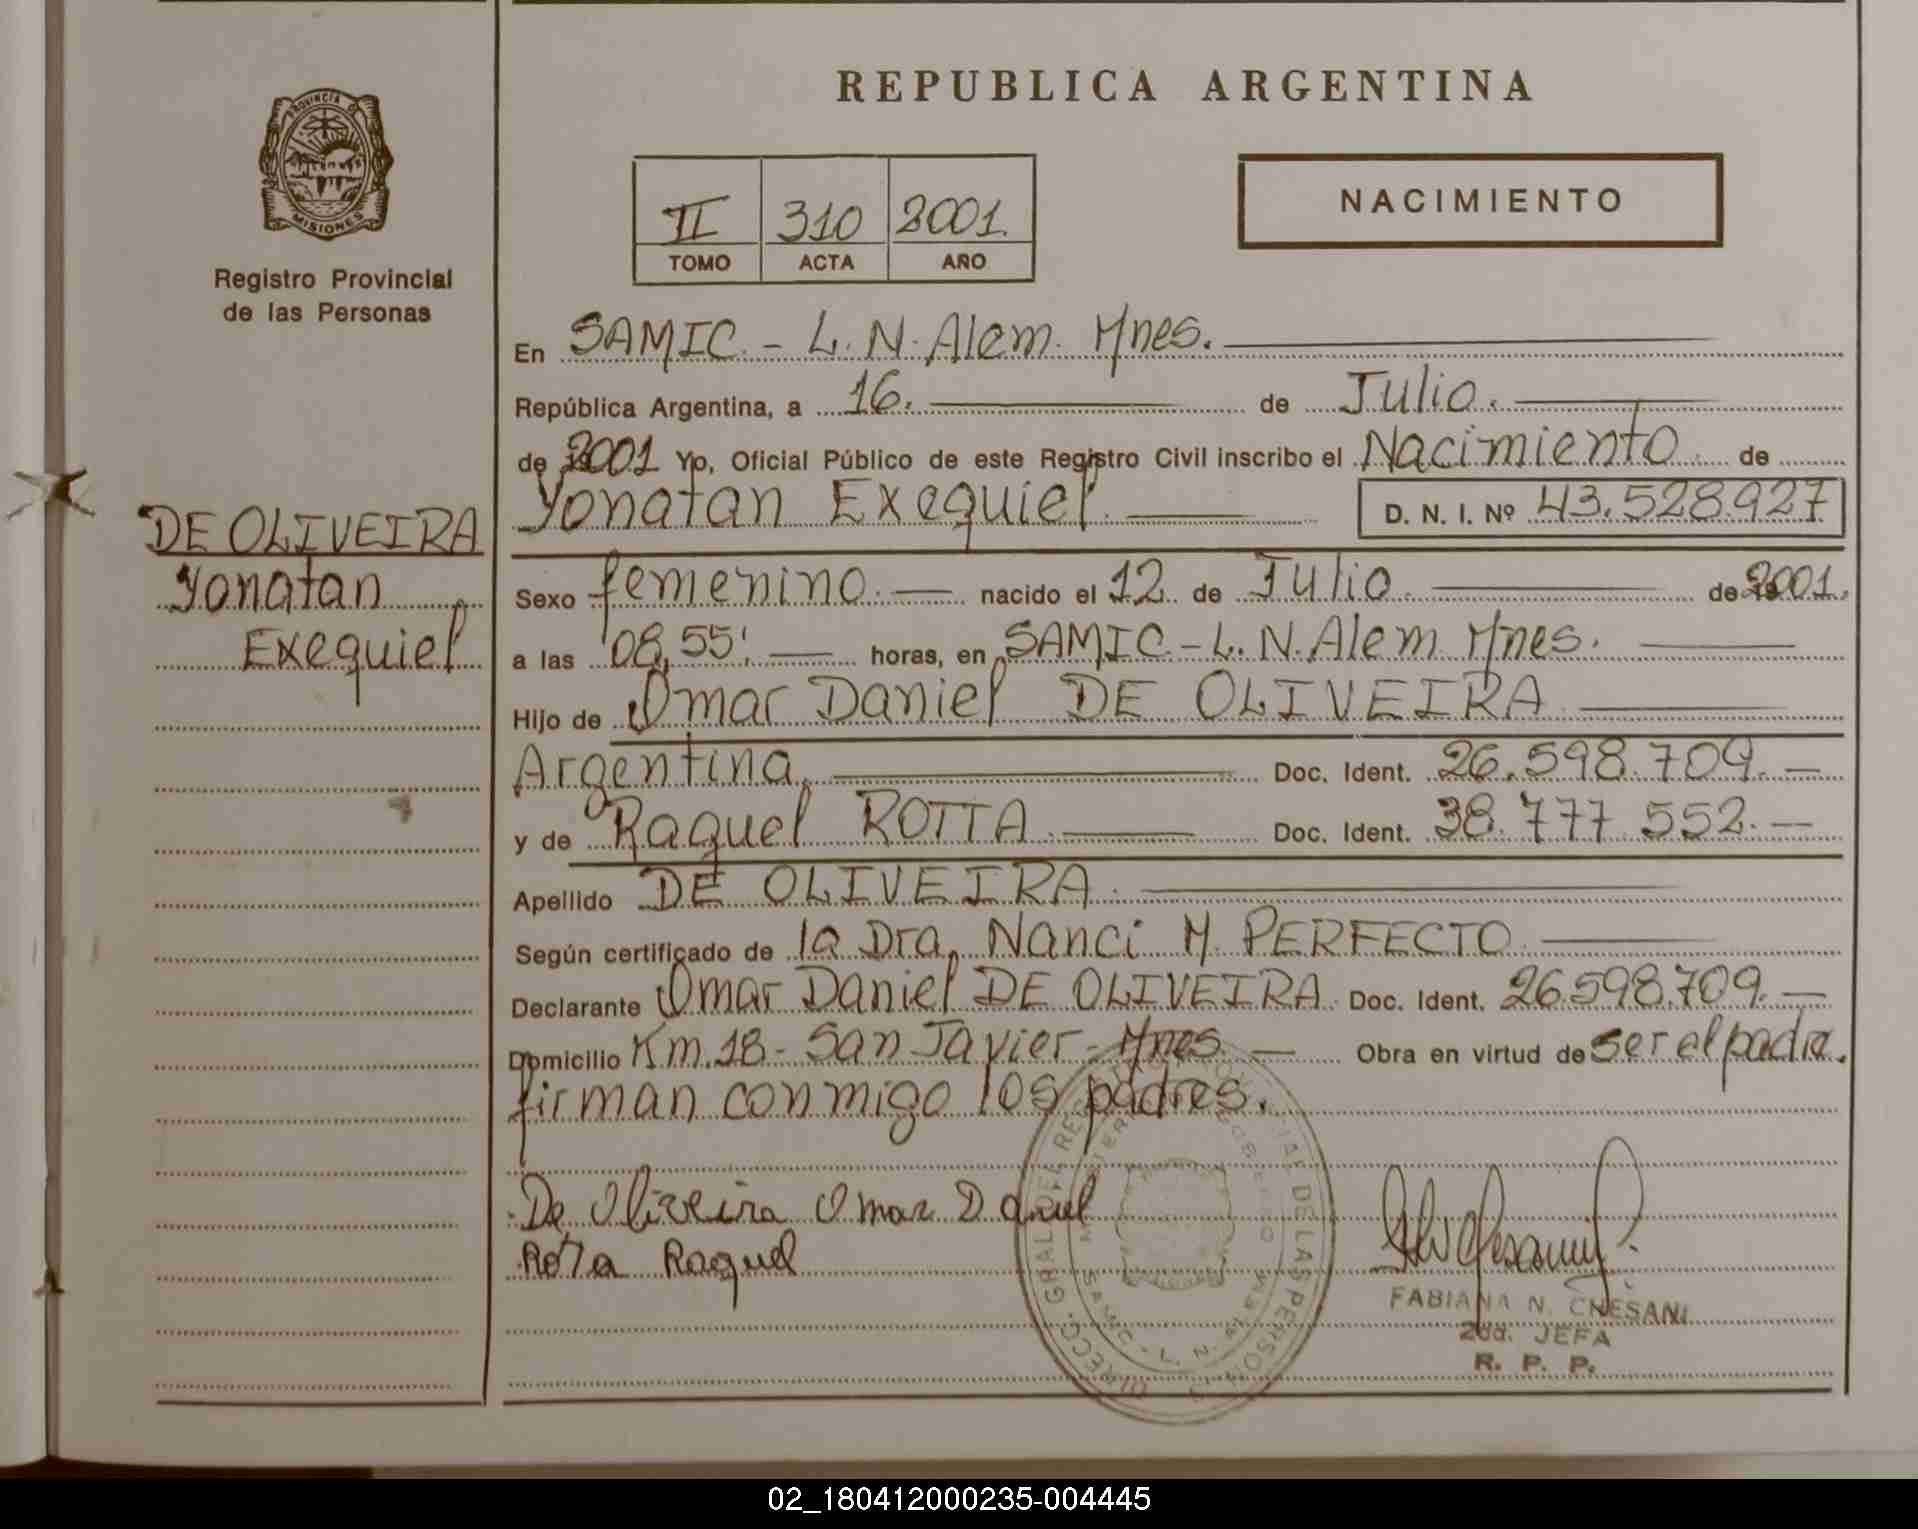 REPUBLICA ARGENTINA
PROVINCIA DE
MISIONES
Registro Provincial
de las Personas
II 310 2001.
TOMO ACTA AÑO
NACIMIENTO
En SAMIC - L. N. Alem Mnes.
República Argentina, a 16. de Julio.
de 2001 Yo, Oficial Público de este Registro Civil inscribo el Nacimiento de
Yonatan Exequiel D. N. I. Nº 43.528.927
DE OLIVEIRA
Yonatan
Exequiel
Sexo femenino. nacido el 12 de Julio de 2001.
a las 08,55' horas, en SAMIC - L. N. Alem Mnes.
Hijo de Omar Daniel DE OLIVEIRA
Argentina. Doc. Ident. 26.598.709.
y de Raquel ROTTA Doc. Ident. 38.777.552.
Apellido DE OLIVEIRA.
Según certificado de la Dra. Nanci M. PERFECTO
Declarante Omar Daniel DE OLIVEIRA Doc. Ident. 26.598.709.
Domicilio Km. 18 - San Javier - Mnes. Obra en virtud de ser el padre.
firman conmigo los padres.
De Oliveira Omar Daniel
Rota Raquel
SAMIC - L. N. ALEM
FABIANA N. CHESANI
2da. JEFA
R. P. P.
02_180412000235-004445